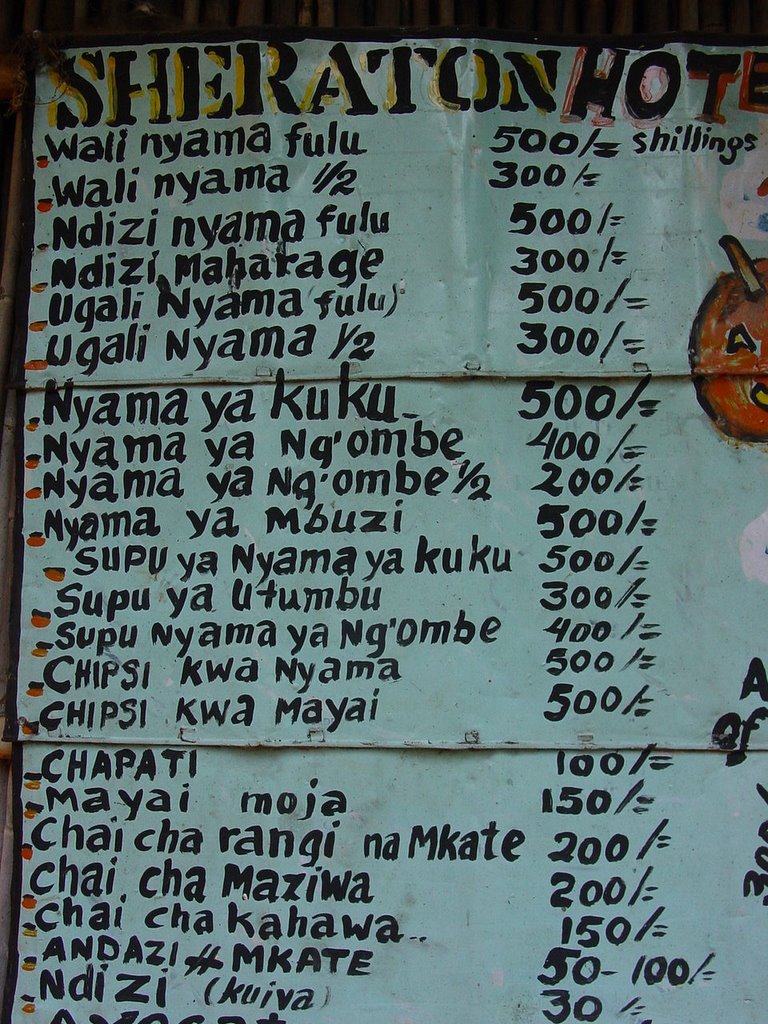 SHERATON HOTE
Wali nyama fulu 500/= shillings
Wali nyama 1/2 300/=
Ndizi nyama fulu 500/=
Ndizi Maharage 300/=
Ugali Nyama (fulu) 500/=
Ugali Nyama 1/2 300/=
Nyama ya kuku 500/=
Nyama ya Ng'ombe 400/=
Nyama ya Ng'ombe 1/2 200/=
Nyama ya Mbuzi 500/=
SUPU ya Nyama ya kuku 500/=
Supu ya Utumbu 300/=
Supu Nyama ya Ng'ombe 400/=
CHIPSI kwa Nyama 500/=
CHIPSI kwa Mayai 500/=
A
of
CHAPATI 100/=
Mayai moja 150/=
Chai cha rangi na Mkate 200/=
Chai cha Maziwa 200/=
Chai cha kahawa.. 150/=
ANDAZI # MKATE 50-100/=
Ndizi (kuiva) 30/=